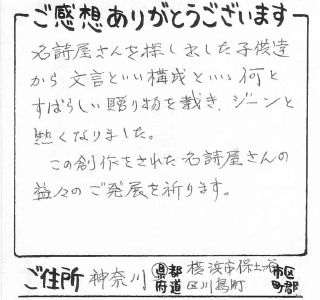 ご感想ありがとうございます
名詩屋さんを探し出した子供達
から 文言といい構成といい 何と
すばらしい贈り物を戴き、ジーンと
熱くなりました。
この創作をされた名詩屋さんの
益々のご発展を祈ります。
ご住所 神奈川 都道府県 横浜市保土ヶ谷 市区町郡
区川島町